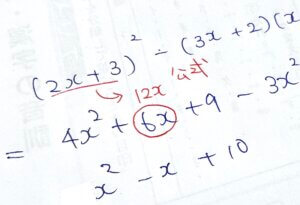 (2x+3)² - (3x+2)(x
→ 12x 公式
= 4x² + 6x + 9 - 3x²
x² - x + 10